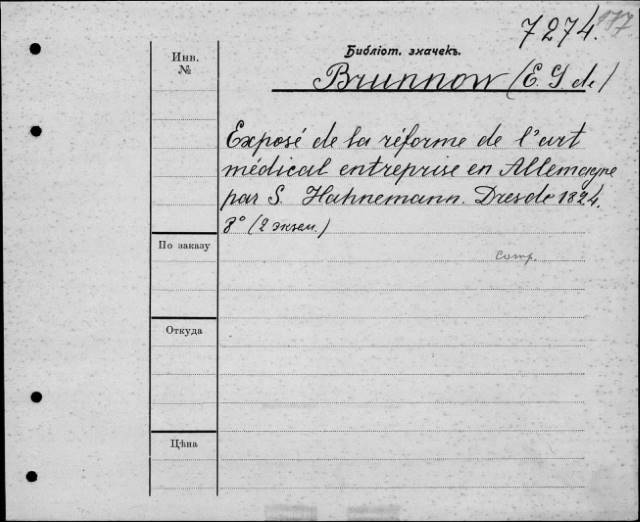 7274. 177
Библіот. значекъ.
Brunnow (E. G. de)
Инв.
№
Exposé de la réforme de l'art
médical entreprise en Allemagne
par S. Hahnemann. Dresde 1824.
8° (2 экзем.)
По заказу
comp.
Откуда
Цѣна